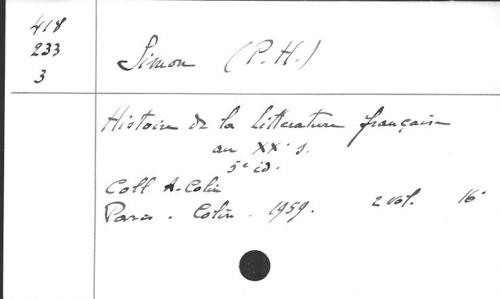 418
233
3
Simon (P.H.)
Histoire de la Littérature française
au XXe s.
5e éd.
Coll A. Colin
Paris. Colin. 1959. 2 vol. 16°